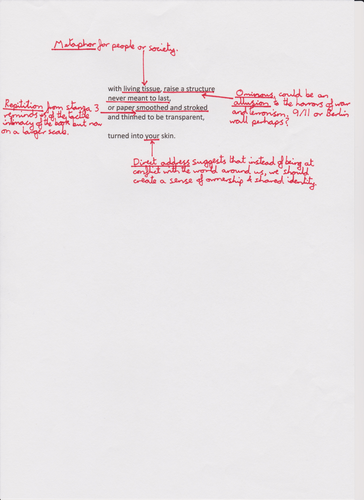 Metaphor for people or society.
with living tissue, raise a structure
never meant to last,
or paper smoothed and stroked
and thinned to be transparent,
turned into your skin.
Ominous, could be an
allusion to the horrors of war
and terrorism, 9/11 or Berlin
wall perhaps?
Repitition from stanza 3
reminds us of the tactile
intimacy of the book but now
on a larger scale.
Direct address suggests that instead of being at
conflict with the world around us, we should
create a sense of ownership & shared identity.